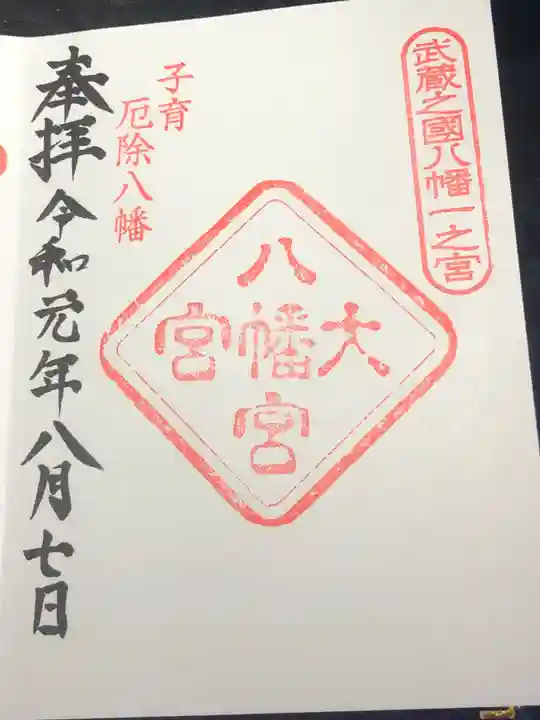 武蔵之國八幡一之宮
大宮
八幡宮
子育
厄除八幡
奉拝令和元年八月七日